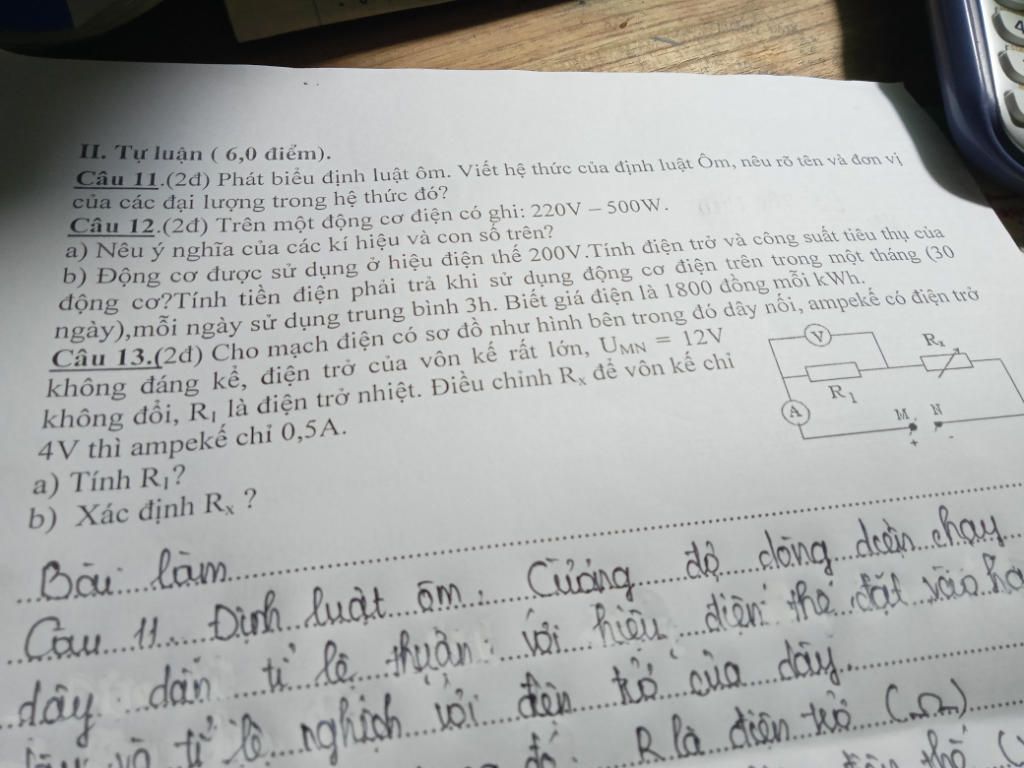 II. Tự luận ( 6,0 điểm).
Câu 11.(2đ) Phát biểu định luật ôm. Viết hệ thức của định luật Ôm, nêu rõ tên và đơn vị
của các đại lượng trong hệ thức đó?
Câu 12.(2đ) Trên một động cơ điện có ghi: 220V – 500W.
a) Nêu ý nghĩa của các kí hiệu và con số trên?
b) Động cơ được sử dụng ở hiệu điện thế 200V.Tính điện trở và công suất tiêu thụ của
động cơ?Tính tiền điện phải trả khi sử dụng động cơ điện trên trong một tháng (30
ngày),mỗi ngày sử dụng trung bình 3h. Biết giá điện là 1800 đồng mỗi kWh.
Câu 13.(2đ) Cho mạch điện có sơ đồ như hình bên trong đó dây nối, ampekế có điện trở
không đáng kể, điện trở của vôn kế rất lớn, UMN = 12V
không đổi, R1 là điện trở nhiệt. Điều chỉnh Rx để vôn kế chỉ
4V thì ampekế chỉ 0,5A.
a) Tính R1?
b) Xác định Rx ?
V
Rx
R1
A
M
N
+
-
Bài làm
Câu 11. Định luật ôm: Cường độ dòng điện chạy
dây dẫn tỉ lệ thuận với hiệu điện thế đặt vào ha
dây và tỉ lệ nghịch với điện trở của dây
đó: R là điện trở (Ω)